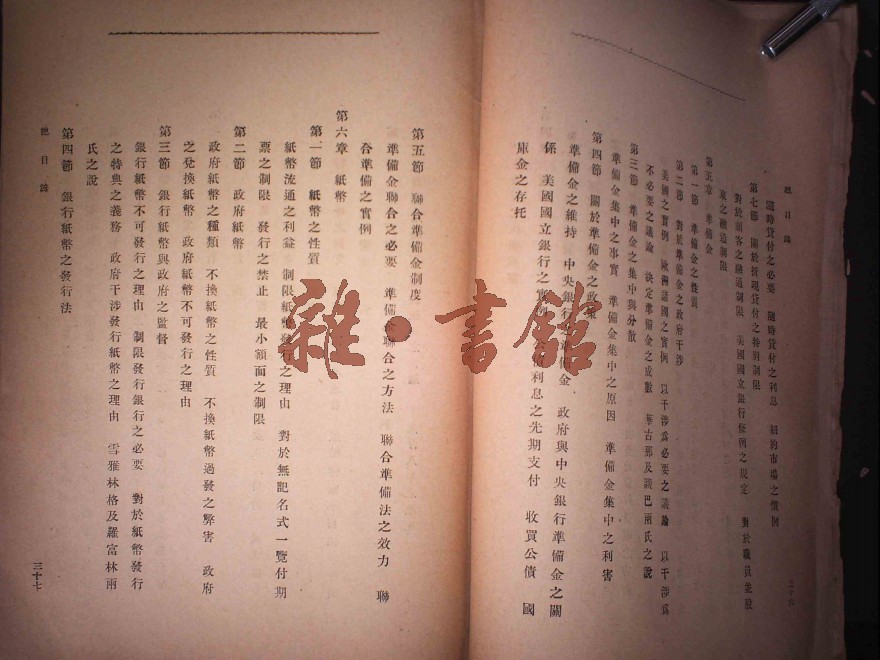 總目錄
隨時貸付之必要　隨時貸付之利息　紐約市場之慣例
第七節　關於折現貸付之特別制限
對於顧客之融通制限　美國國立銀行條例之規定　對於職員並股
東之融通制限
第五章　準備金
第一節　準備金之性質
第二節　對於準備金之政府干涉
美國之實例　歐洲諸國之實例　以干涉爲必要之議論　以干涉爲
不必要之議論　決定準備金之成數　華古那及識巴兩氏之說
第三節　準備金之集中與分散
準備金集中之事實　準備金集中之原因　準備金集中之利害
第四節　關於準備金之政策
準備金之維持　中央銀行準備金　政府與中央銀行準備金之關
係　美國國立銀行之實例　公債利息之先期支付　收買公債　國
庫金之存托
三十六
第五節　聯合準備金制度
準備金聯合之必要　準備金聯合之方法　聯合準備法之效力　聯
合準備之實例
第六章　紙幣
第一節　紙幣之性質
紙幣流通之利益　制限紙幣發行之理由　對於無記名式一覽付期
票之制限　發行之禁止　最小額面之制限
第二節　政府紙幣
政府紙幣之種類　不換紙幣之性質　不換紙幣過發之弊害　政府
之兌換紙幣　政府紙幣不可發行之理由
第三節　銀行紙幣與政府之監督
銀行紙幣不可發行之理由　制限發行銀行之必要　對於紙幣發行
之特典之義務　政府干涉發行紙幣之理由　雪雅林格及羅富林兩
氏之說
第四節　銀行紙幣之發行法
總目錄
三十七
雜·書館